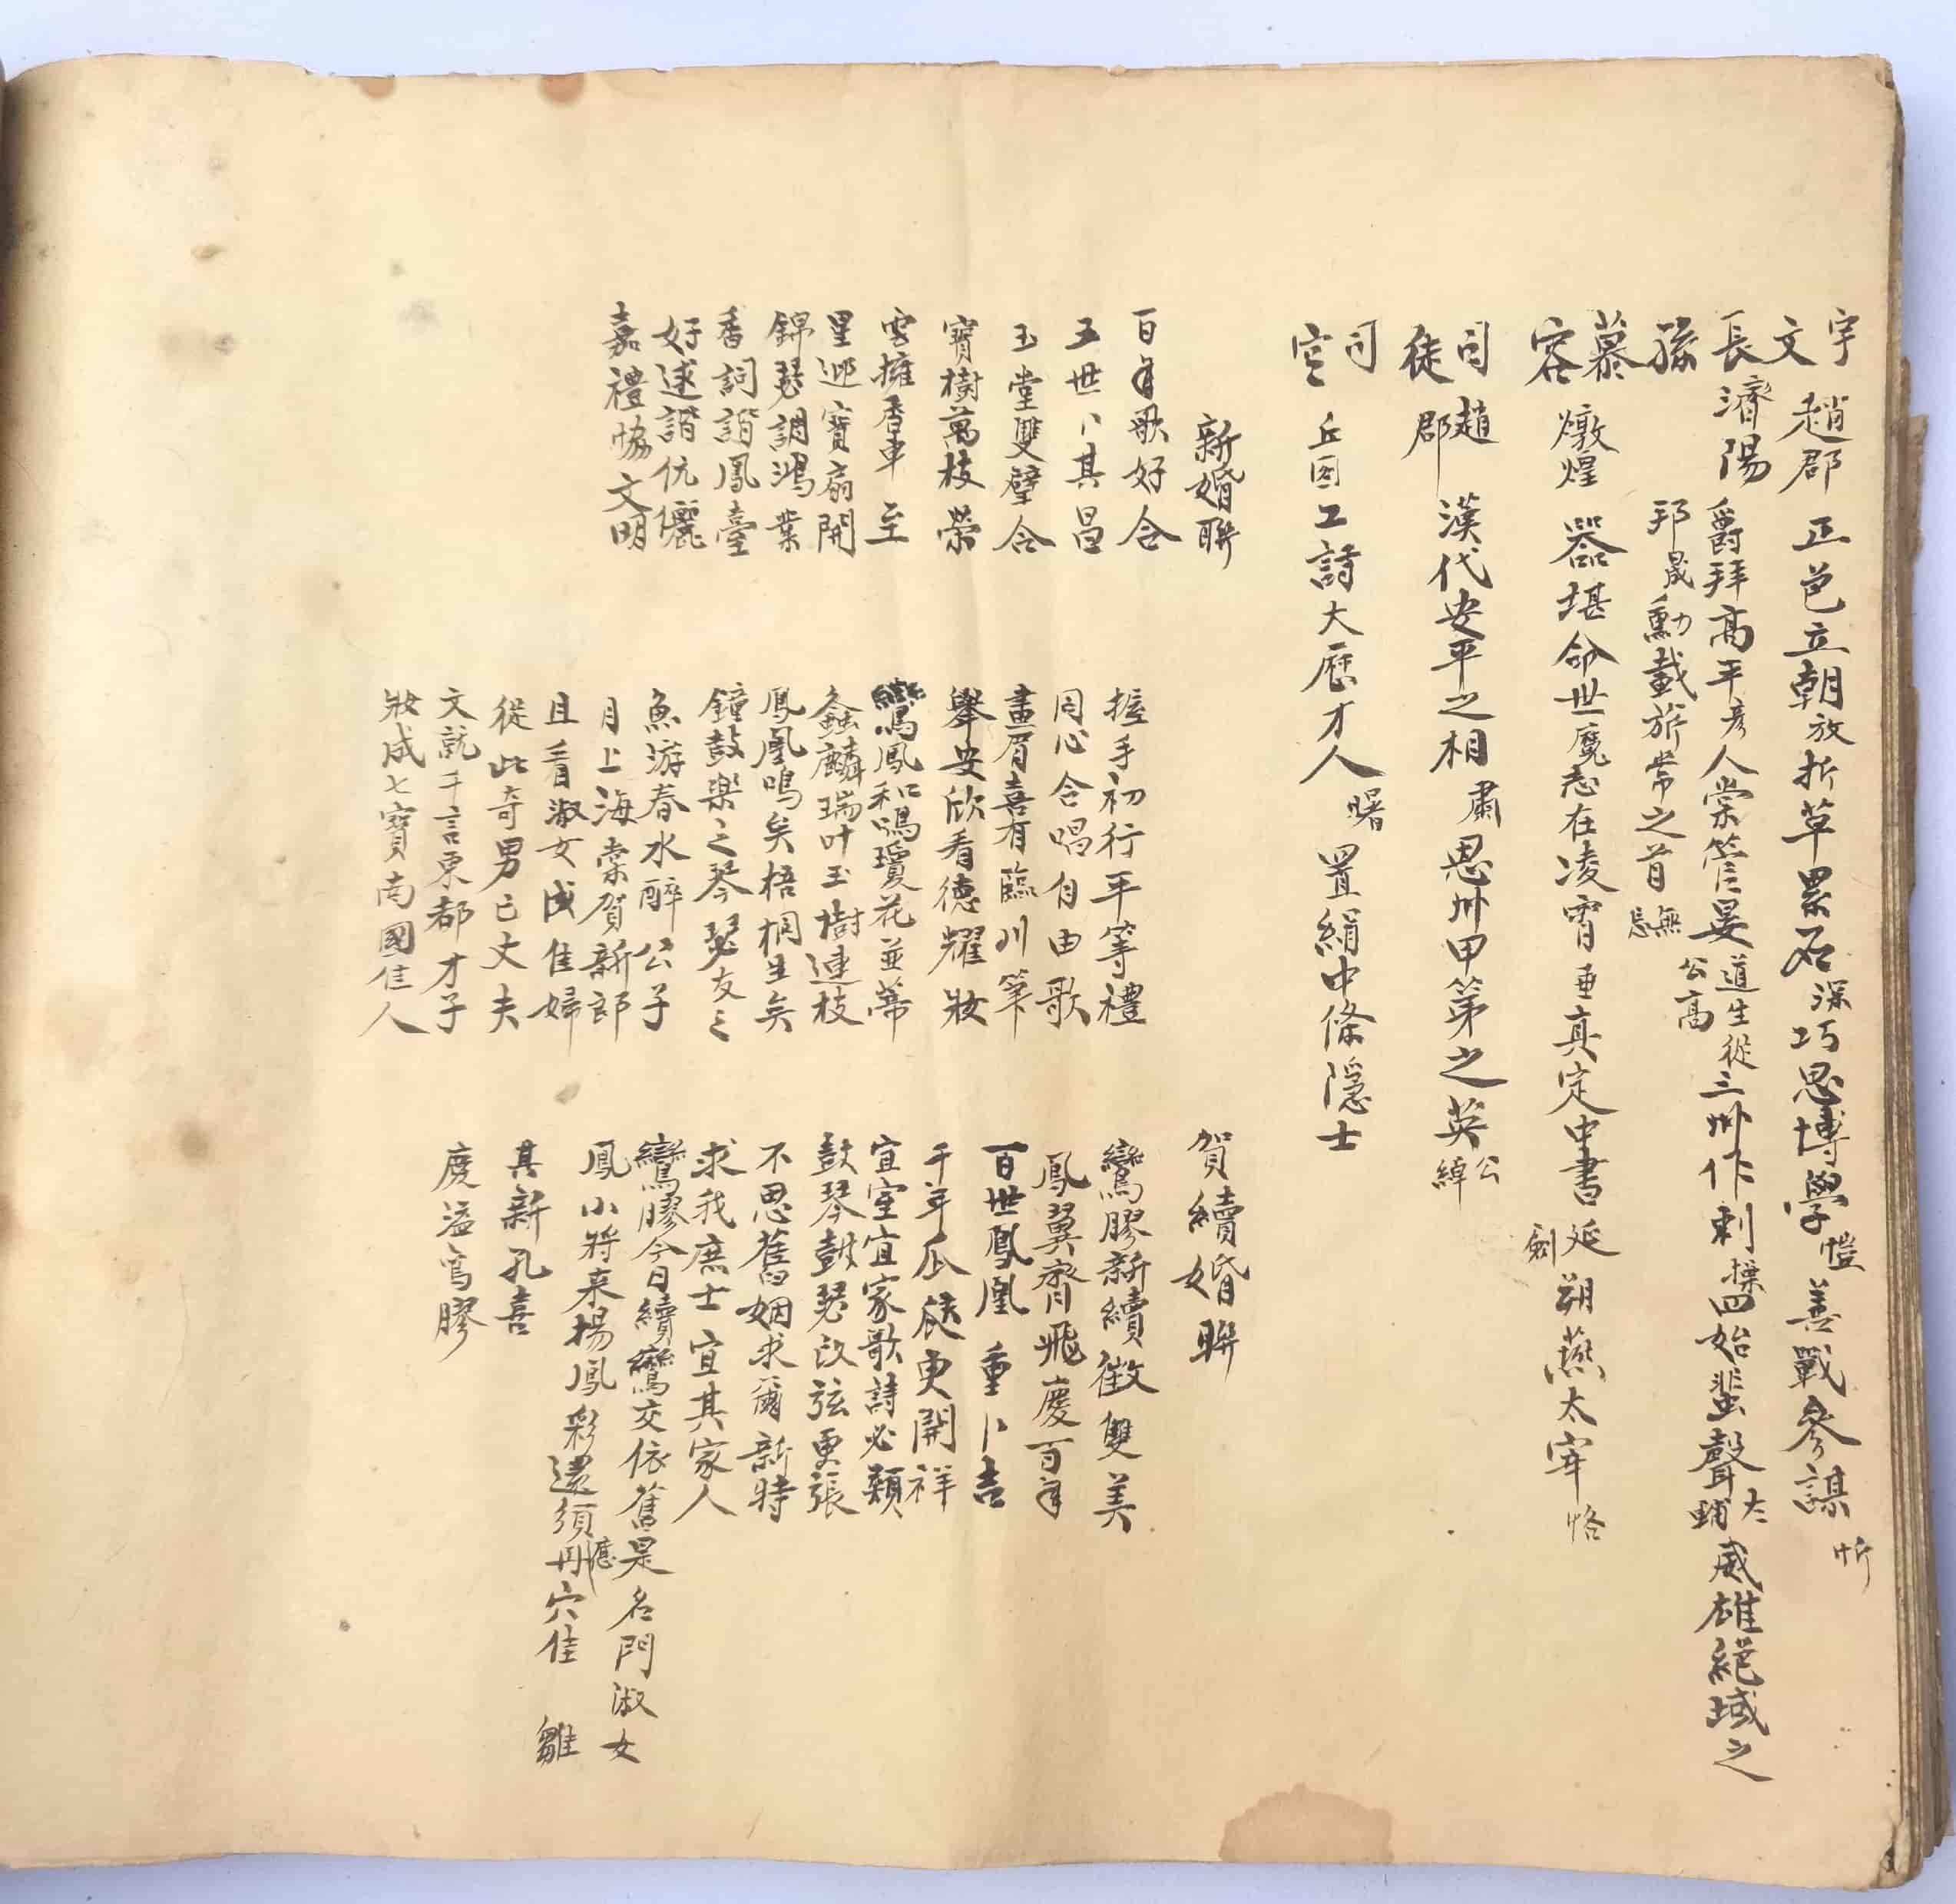 宇文 趙郡 正色立朝放折草累石深巧思博學愷善戰參謀忻
長孫 濟陽 爵拜高平彥人棠管晏道生從三州作刺操四始蜚聲太輔威雄絕域之
邦晟勳載旂常之首無忌公高
慕容 燉煌 器堪命世廆志在凌霄垂真定中書延釗朔燕太宰恪
司徒 趙郡 漢代安平之相肅恩州甲第之英公綽
司空 丘 工詩大歷才人曙置絹中條隱士
新婚聯
百年歌好合
五世卜其昌
玉堂雙璧合
寶樹萬枝榮
雲擁香車至
星迎寶扇開
錦瑟調鴻業
香詞諧鳳臺
好逑諧伉儷
嘉禮協文明
握手初行平等禮
同心合唱自由歌
畫眉喜有臨川筆
舉安欣看德耀妝
鸞鳳和鳴瓊花並蒂
螽麟瑞叶玉樹連枝
鳳凰鳴矣梧桐生矣
鐘鼓樂之琴瑟友之
魚游春水醉公子
月上海棠賀新郎
且看淑女成佳婦
從此奇男已丈夫
文就千言東都才子
妝成七寶南國佳人
賀續婚聯
鸞膠新續徵雙美
鳳翼齊飛慶百年
百世鳳凰重卜吉
千年瓜瓞更開祥
宜室宜家歌詩必類
鼓琴鼓瑟改弦更張
不思舊姻求爾新特
求我庶士宜其家人
鸞膠今日續鸞交依舊是名門淑女
鳳小將來揚鳳彩還須應丹穴佳雛
其新孔喜
慶溢鸞膠